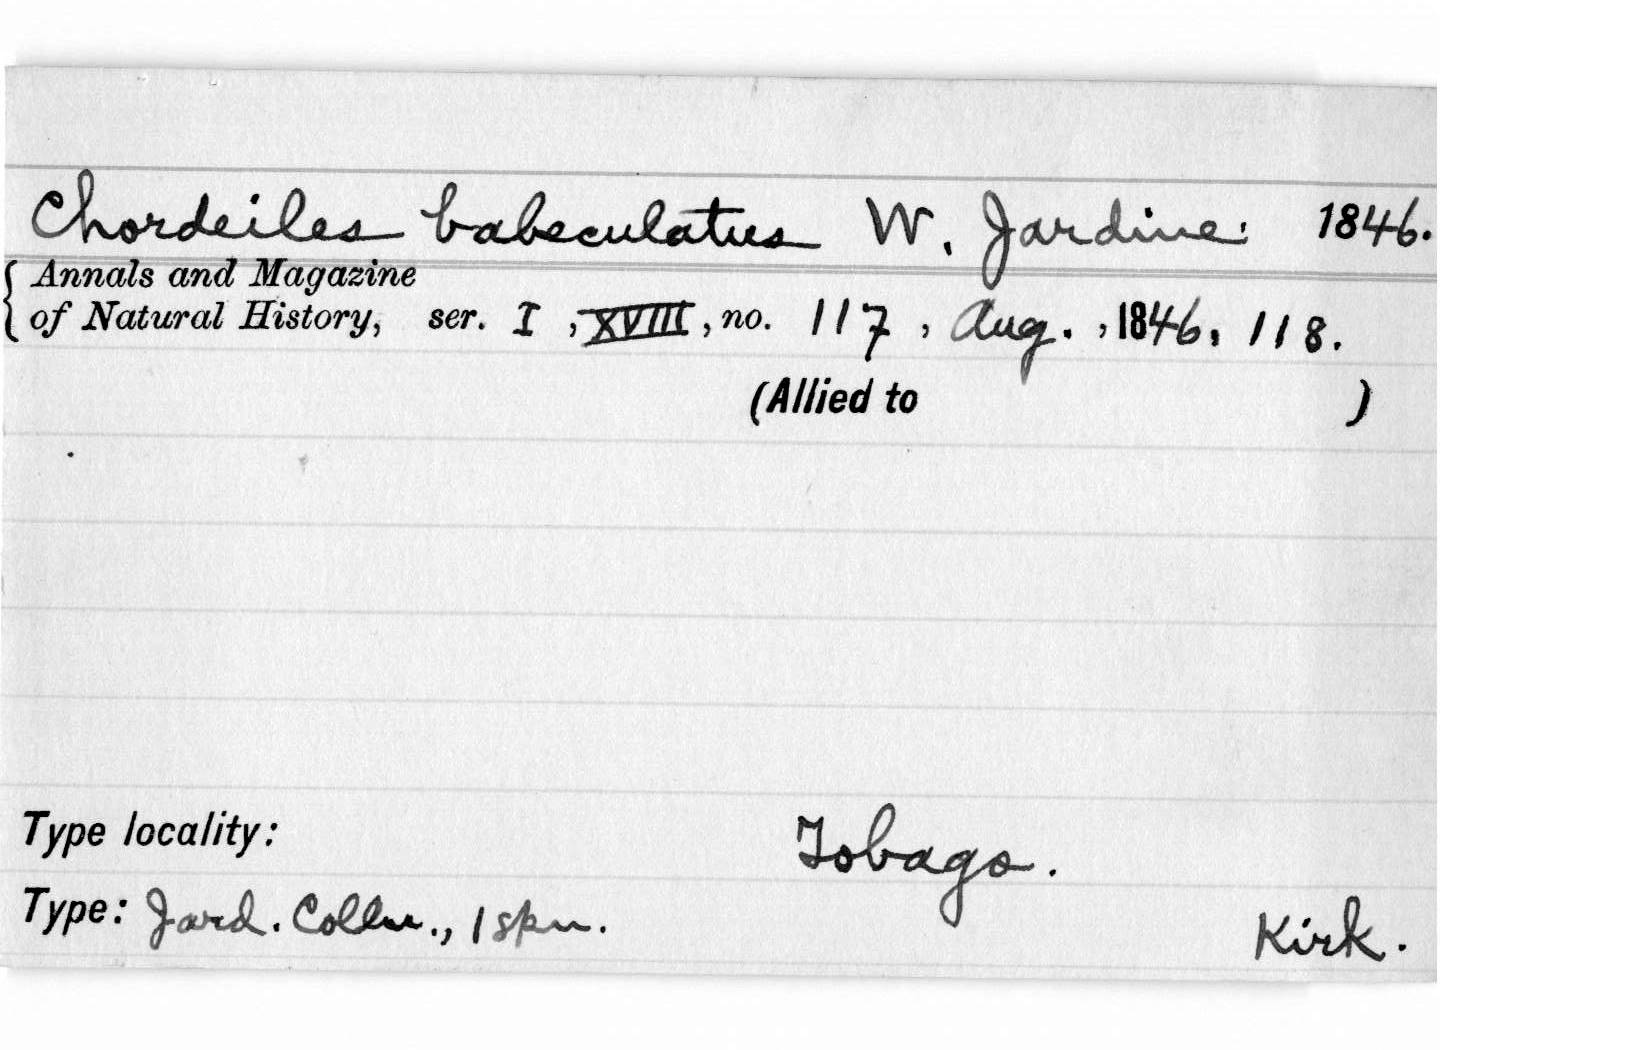 Chordeiles labeculatus W. Jardine. 1846.
{ Annals and Magazine
of Natural History, ser. I , XVIII , no. 117 , Aug. , 1846, 118.
(Allied to )
Type locality: Tobago.
Type: Jard. Colln., 1 spn. Kirk.